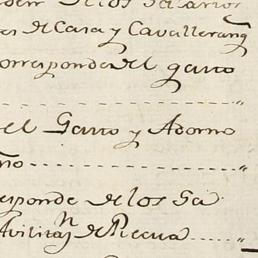 de los Salarios
es de Casa y Cavalleranç
orresponde el gasto
el Gasto y Adorno
ño
esponde de los Sa
Avilitaⁿ de Recua